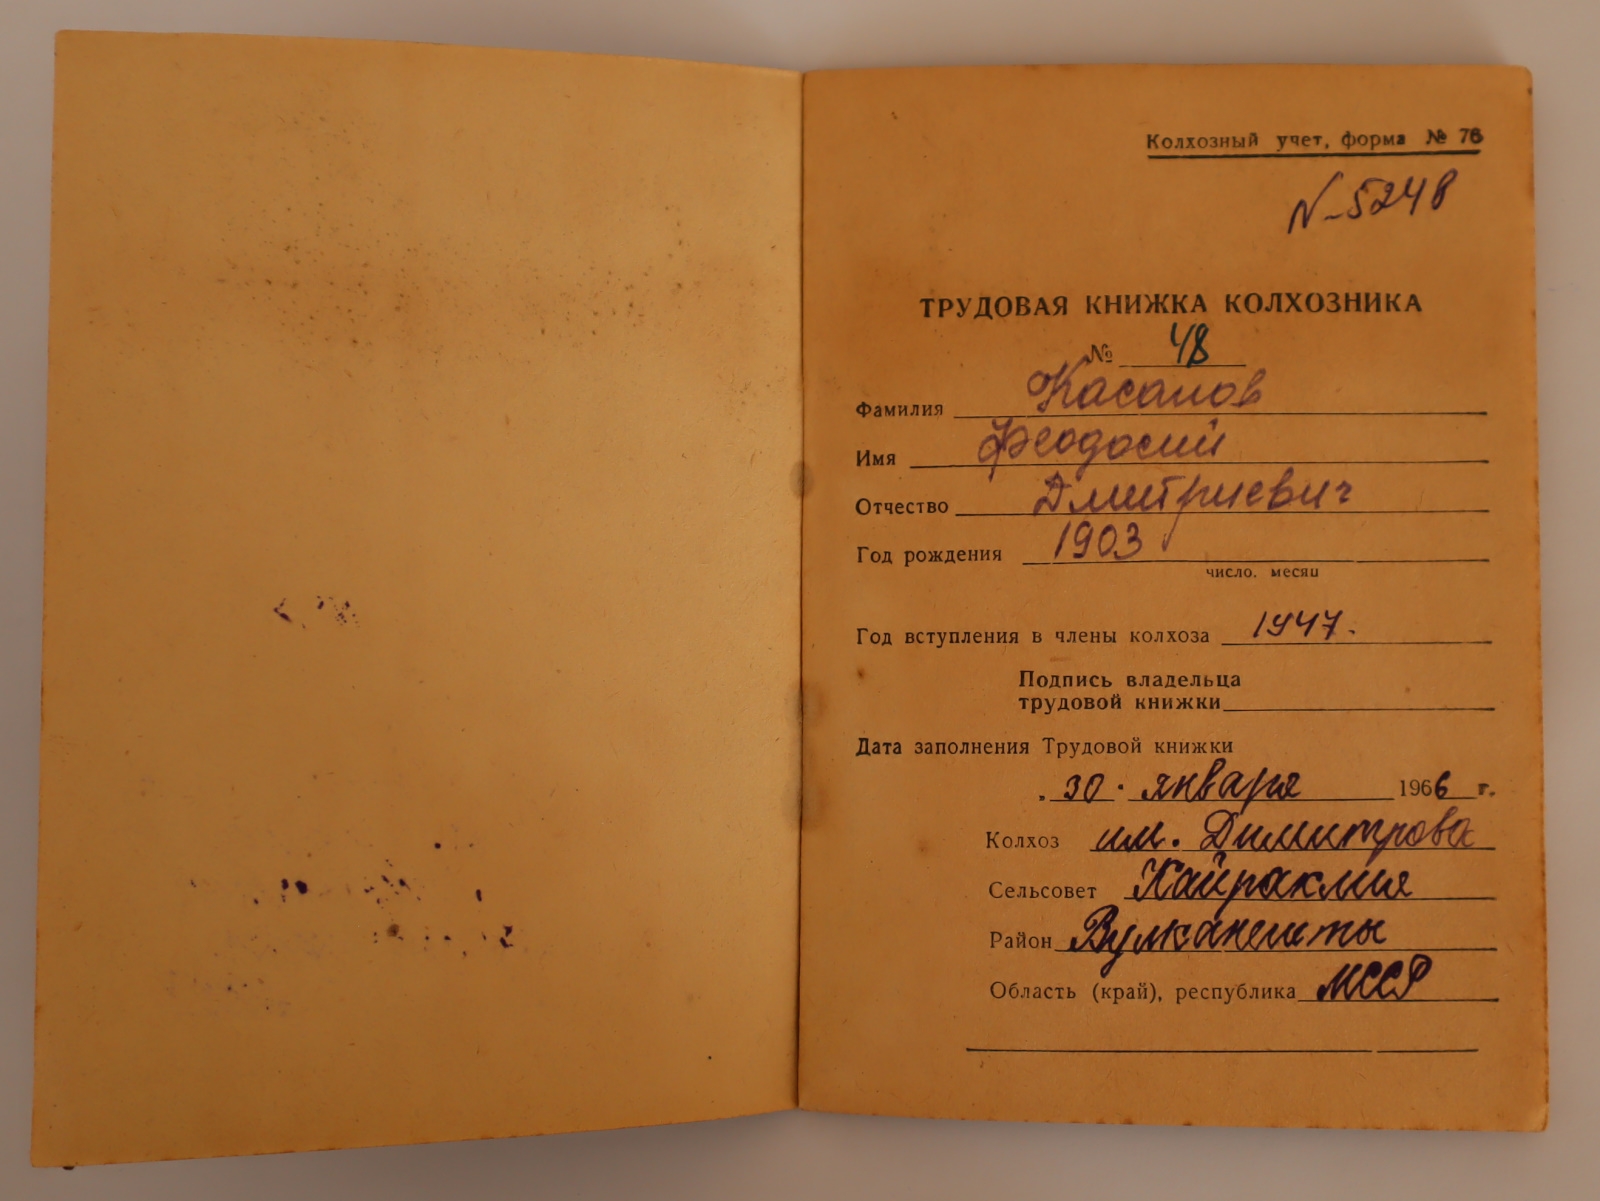 Колхозный учет, форма № 76
N-5248
ТРУДОВАЯ КНИЖКА КОЛХОЗНИКА
№ 48
Фамилия Касапов
Имя Феодосий
Отчество Дмитриевич
Год рождения 1903
число, месяц
Год вступления в члены колхоза 1947.
Подпись владельца
трудовой книжки
Дата заполнения Трудовой книжки
„30" января 1966 г.
Колхоз им. Димитрова
Сельсовет Кайраклия
Район Вулканешты
Область (край), республика МССР